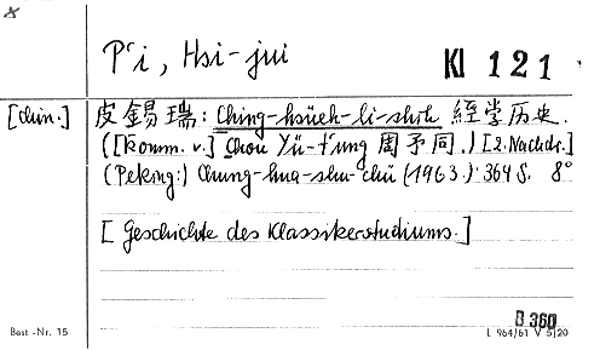 P'i, Hsi-jui
KI 121
[chin.] 皮錫瑞: Ching-hsüeh-li-shih 經学历史.
([Komm. v.] Chou Yü-t'ung 周予同.) [2. Nachdr.]
(Peking:) Chung-hua-shu-chü (1963.) 364 S. 8°
[Geschichte des Klassikerstudiums.]
B 360
Best.-Nr. 15
L 964/61 V 5/20